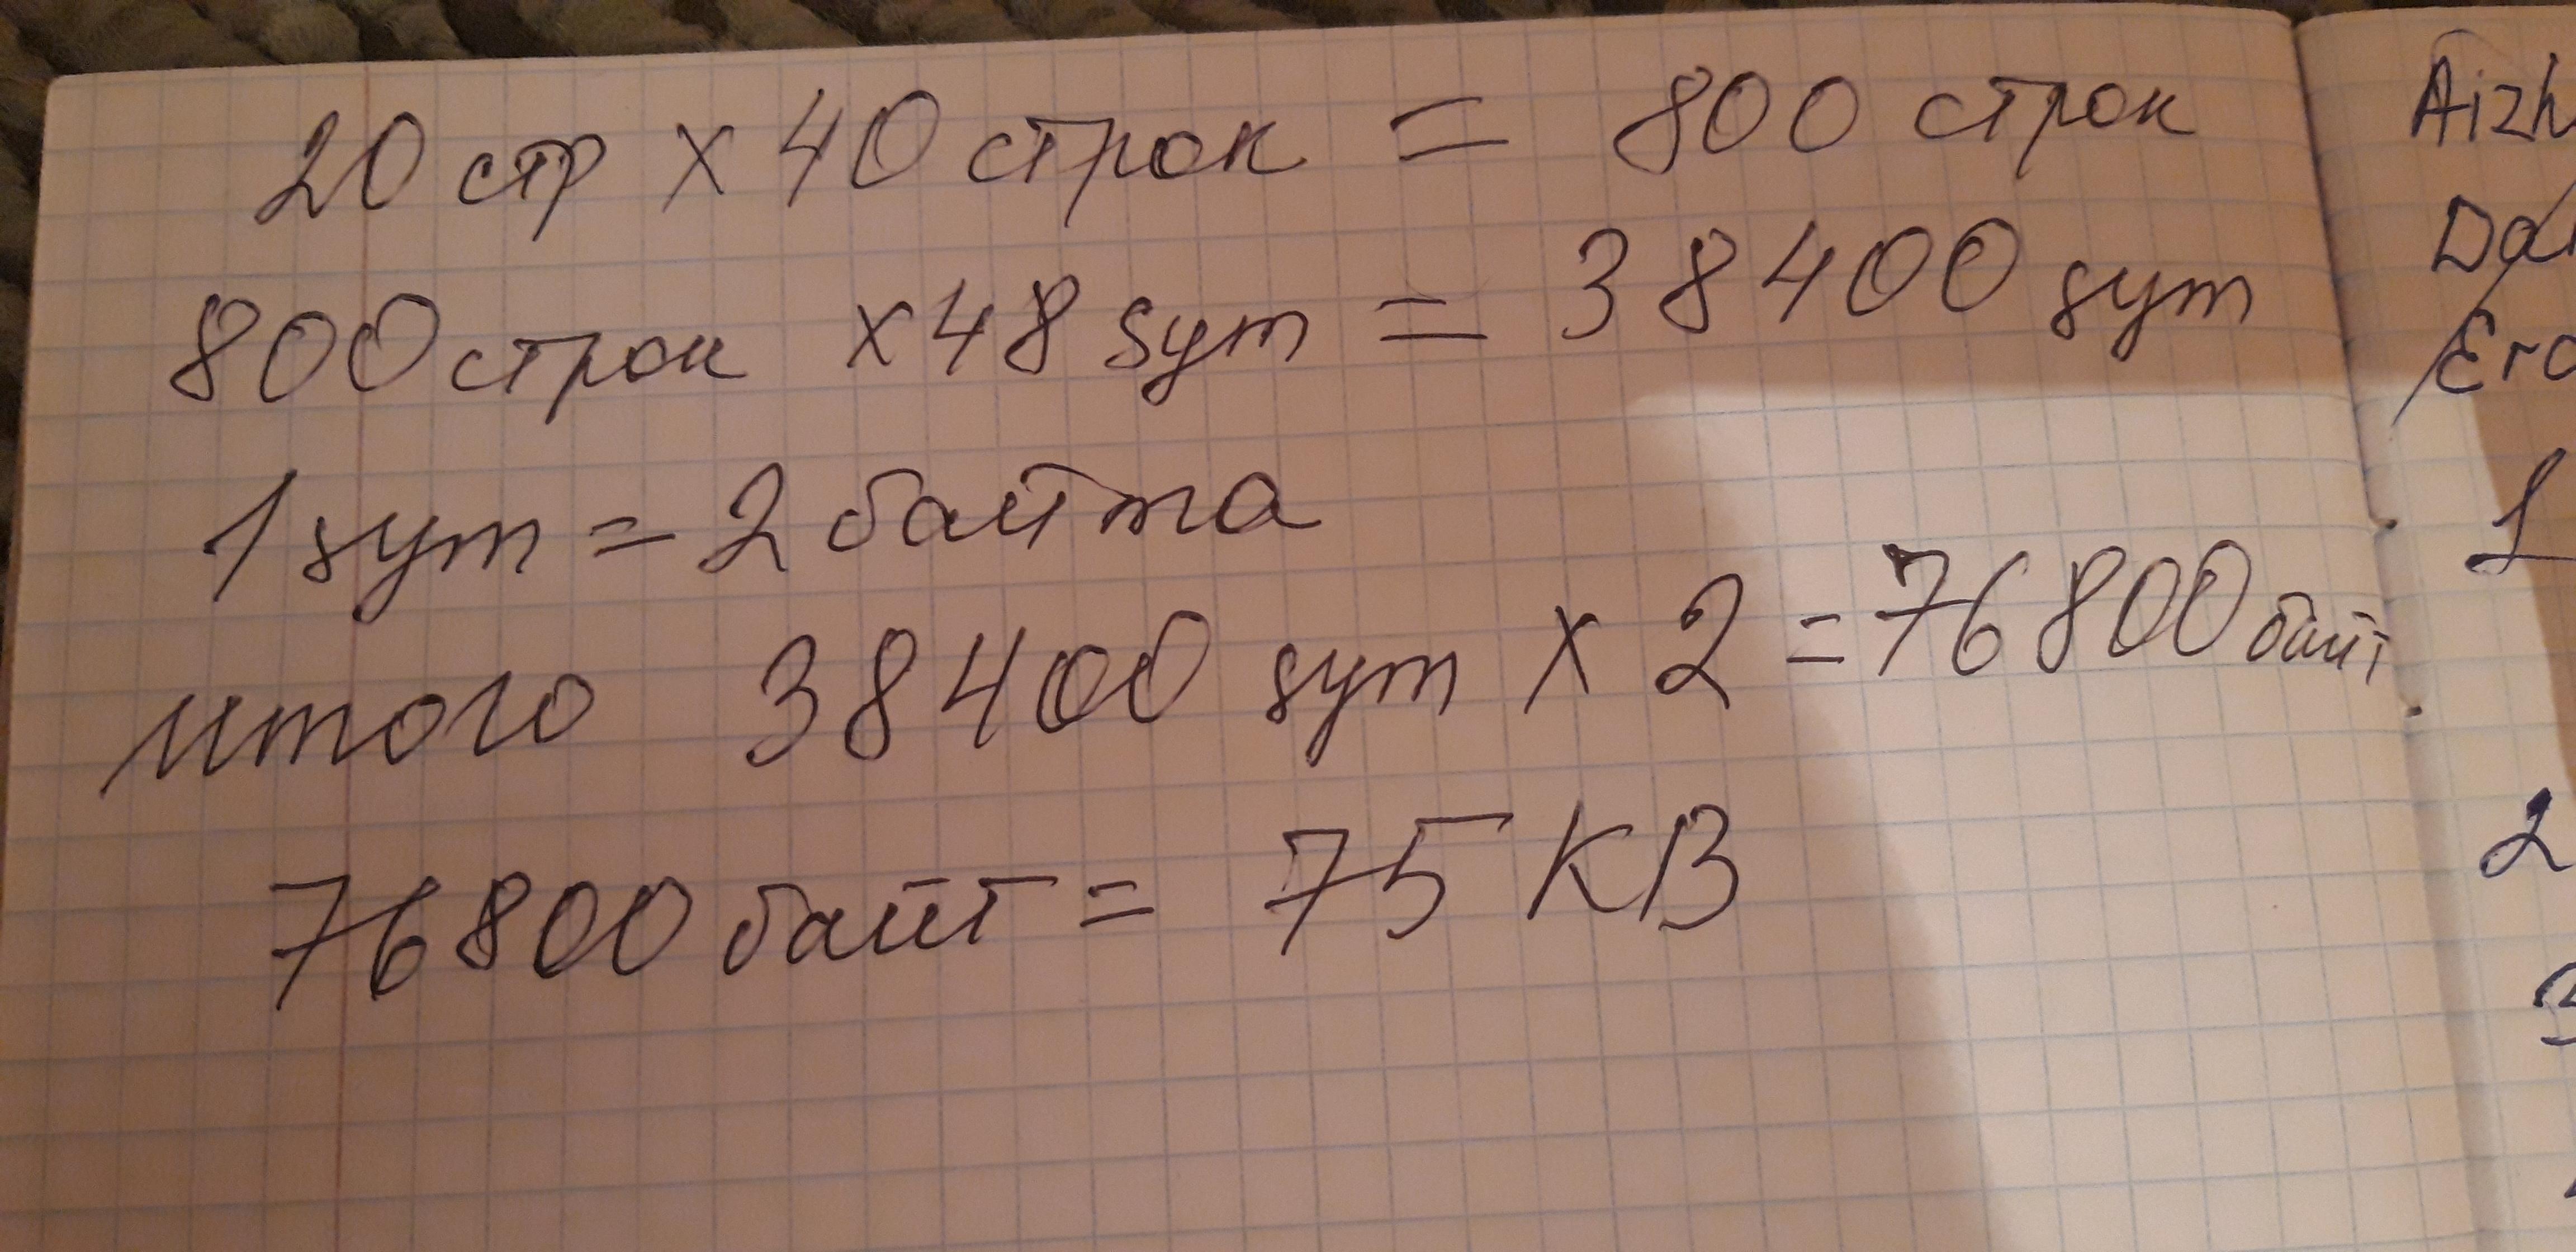 20 стр x 40 строк = 800 строк
800 строк x 48 sym = 38400 sym
1 sym = 2 байта
итого 38400 sym x 2 = 76800 байт
76800 байт = 75 KB
Aizh
Da
Erd
1
2
3